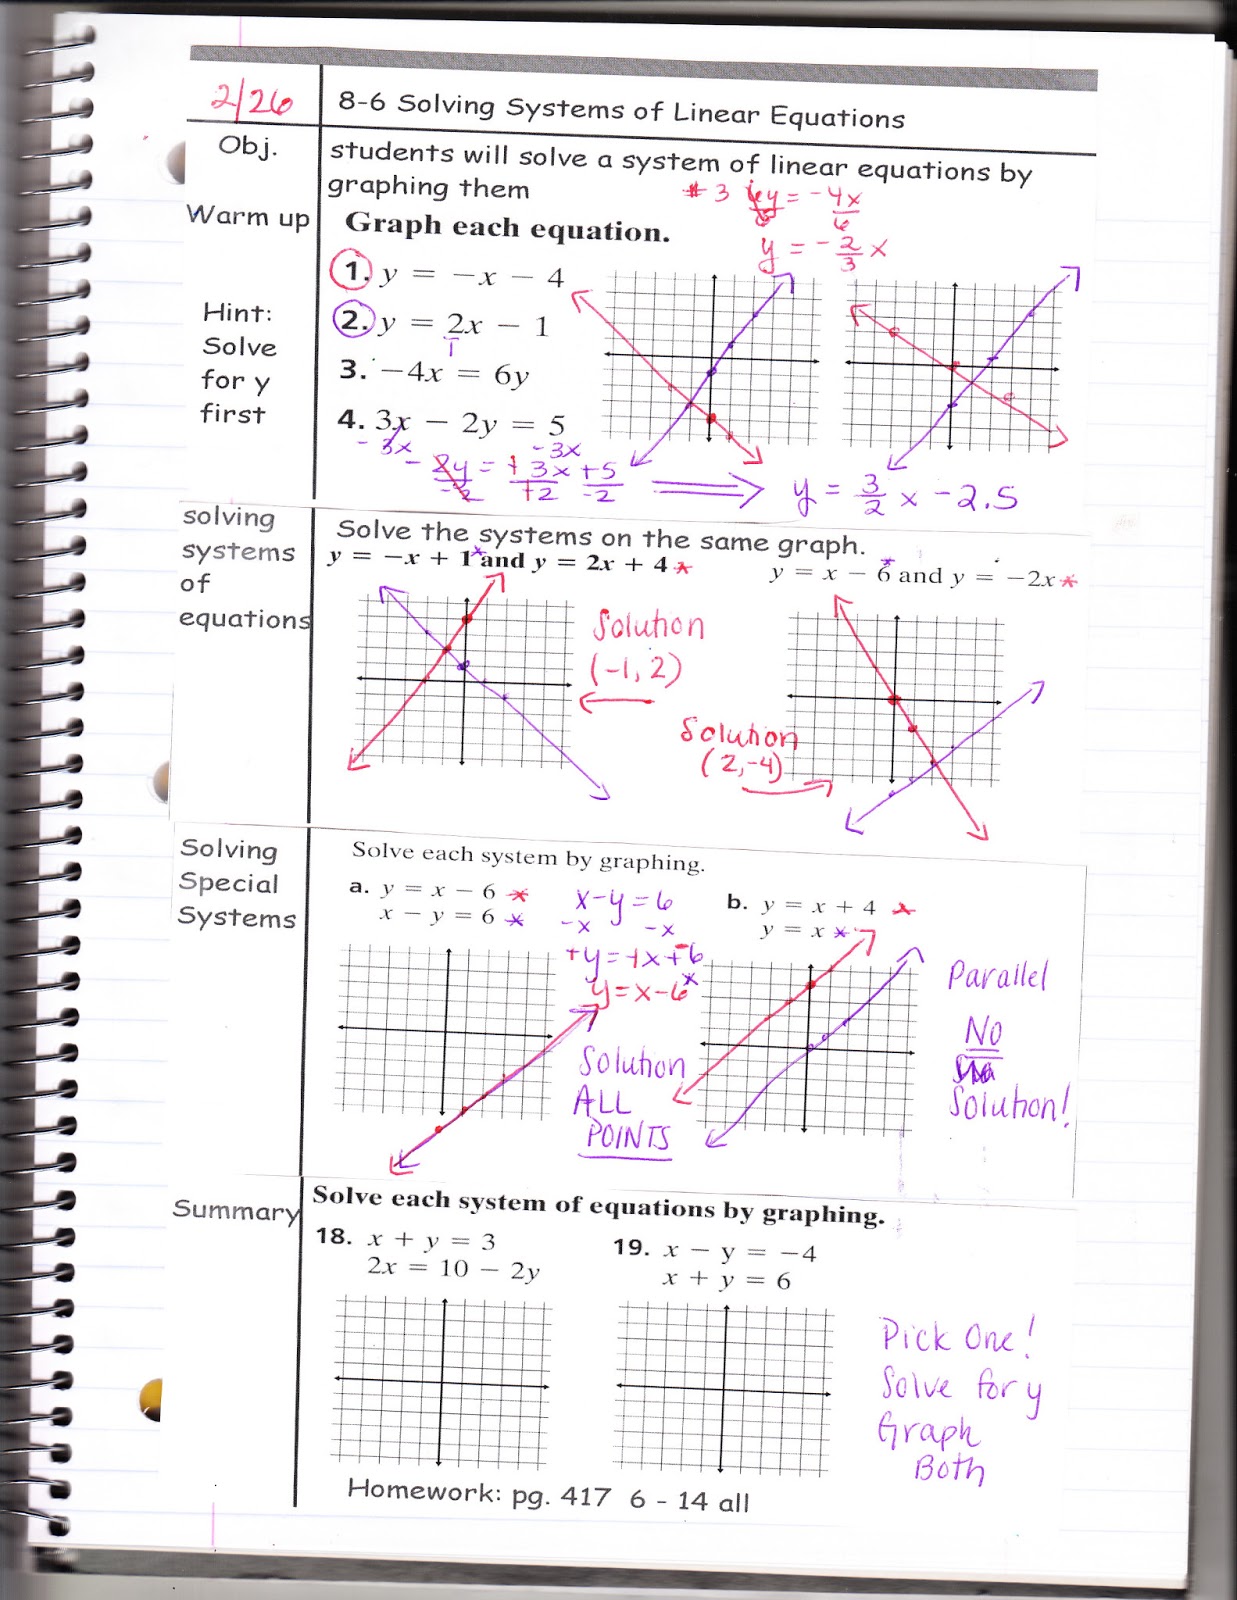 2/26
8-6 Solving Systems of Linear Equations
Obj.
students will solve a system of linear equations by
graphing them
# 3 6y = -4x
6
y = -2/3 x
Warm up
Graph each equation.
1. y = −x − 4
Hint:
Solve
for y
first
2. y = 2x − 1
1
3. −4x = 6y
4. 3x − 2y = 5
-3x -3x
-2y = +3x +5
-2 +2 -2
y = 3/2 x -2.5
solving
systems
of
equations
Solve the systems on the same graph.
y = −x + 1* and y = 2x + 4*
y = x − 6* and y = −2x*
Solution
(-1, 2)
Solution
(2,-4)
Solving
Special
Systems
Solve each system by graphing.
a. y = x − 6 *
x − y = 6 *
x-y=6
-x -x
+y=+x+-6
y=x-6*
Solution
ALL
POINTS
b. y = x + 4 *
y = x *
Parallel
NO
Solution!
Summary
Solve each system of equations by graphing.
18. x + y = 3
2x = 10 − 2y
19. x − y = −4
x + y = 6
Pick One!
Solve for y
Graph
Both
Homework: pg. 417 6 - 14 all